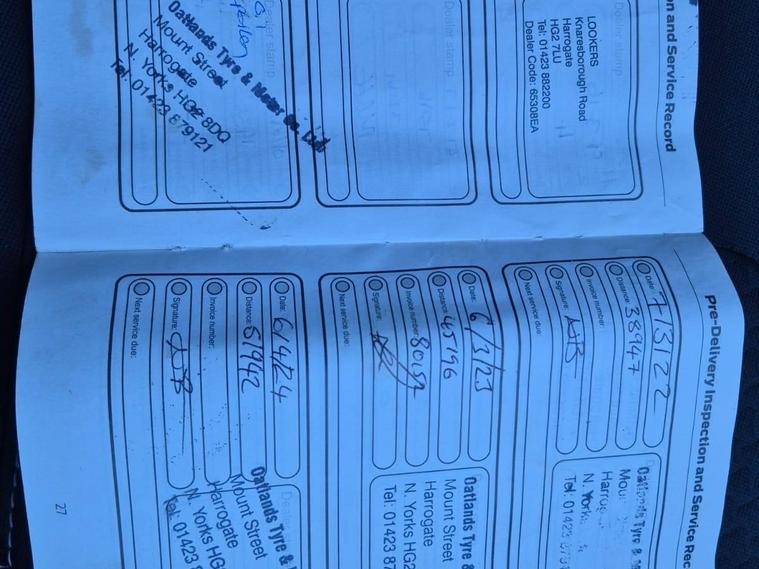 on and Service Record
Dealer stamp
LOOKERS
Knaresborough Road
Harrogate
HG2 7LU
Tel: 01423 882200
Dealer Code: 65308EA
Dealer stamp
Dealer stamp
Oatlands Tyre & Motor Co. Ltd
Mount Street
Harrogate
N. Yorks HG2 8DQ
Tel: 01423 879121
Pre-Delivery Inspection and Service Rec
Date: 7/3/22
Distance: 38947
Invoice number:
Signature:
Next service due:
Oatlands Tyre &
Mou
Harrog
N. York
Tel: 01423 879
Date: 6/3/23
Distance: 45196
Invoice number:
Signature:
Next service due:
Oatlands Tyre &
Mount Street
Harrogate
N. Yorks HG2
Tel: 01423 87
Date: 6/4/24
Distance: 51942
Invoice number:
Signature:
Next service due:
Oatlands Tyre &
Mount Street
Harrogate
N. Yorks HG
Tel: 01423 8
27